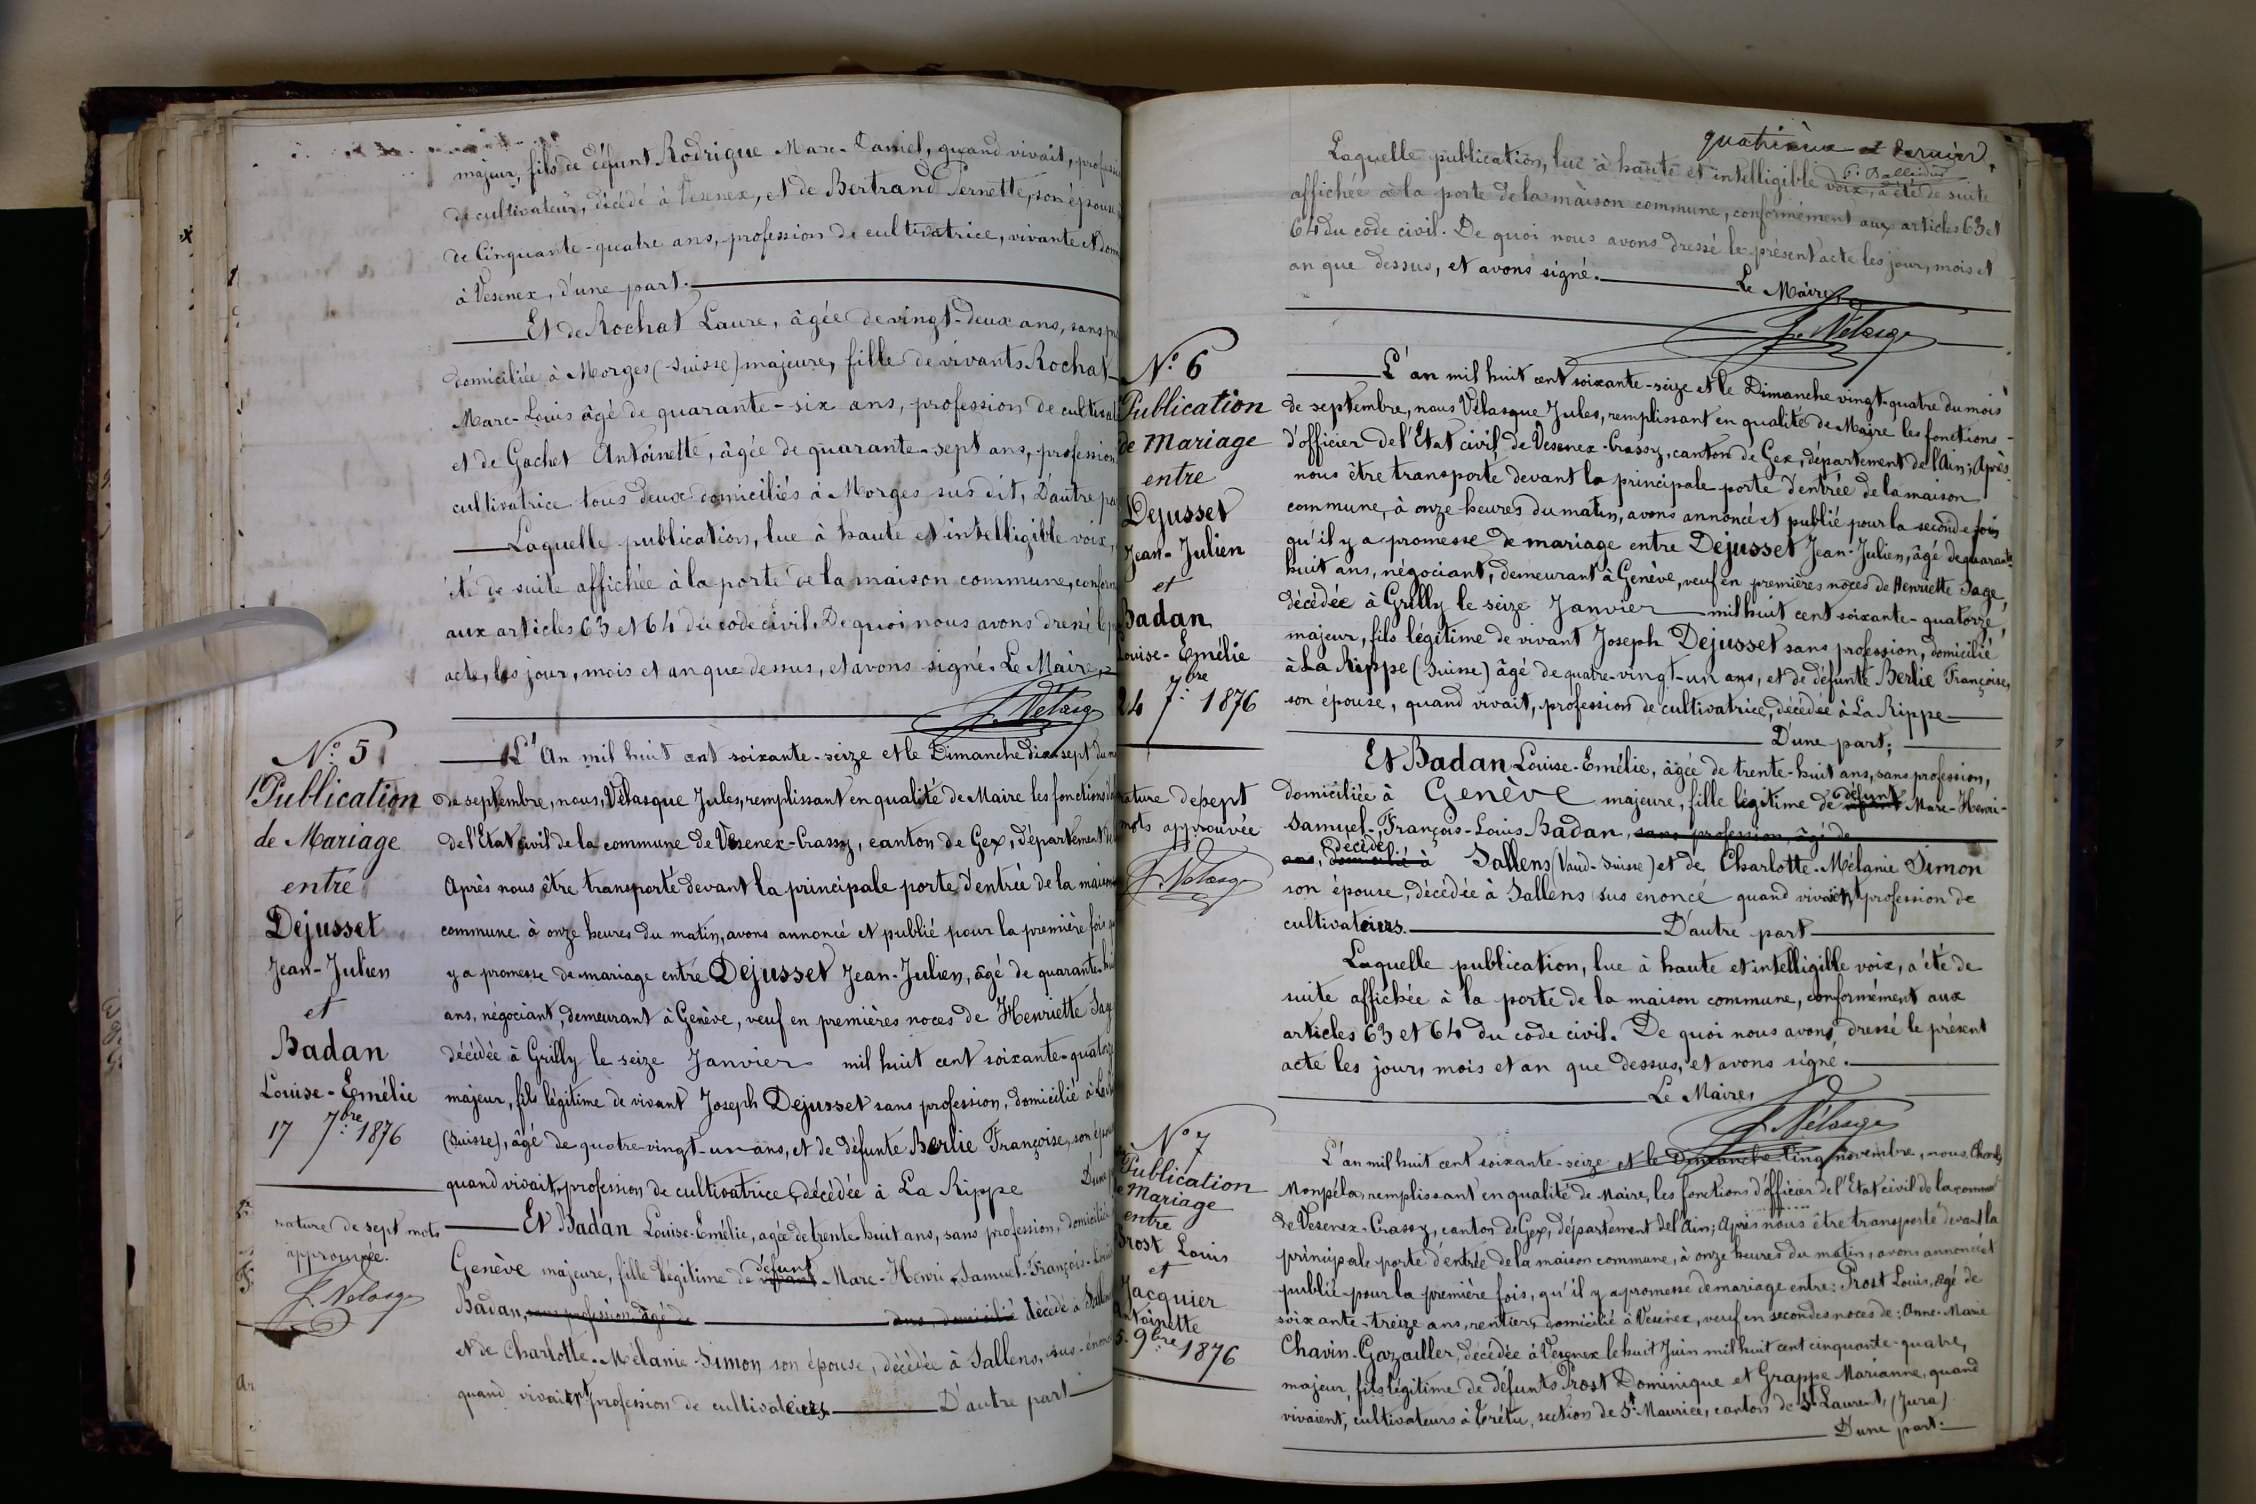 majeur, fils de défunt Rodrigue Marc-Daniel, quand vivait, profess
de cultivateur, décédé à Vesenex, et de Bertrand Pernette, son épouse
de Cinquante-quatre ans, profession de cultivatrice, vivante et dom
à Vesenex, d'une part.
Et de Rochat Laure, âgée de vingt-deux ans, sans pr
domiciliée à Morges (Suisse) majeure, fille de vivants Rochat
Marc-Louis âgé de quarante-six ans, profession de cultivat
et de Gachet Antoinette, âgée de quarante-sept ans, profession
cultivatrice tous deux domiciliés à Morges sus dit, D'autre pa
Laquelle publication, lue à haute et intelligible voix,
été de suite affichée à la porte de la maison commune, conform
aux articles 63 et 64 du code civil. De quoi nous avons dressé le p
acte, les jour, mois et an que dessus, et avons signé. Le Maire,
J. Vélasque
N° 5
Publication
de Mariage
entre
Dejusset
Jean-Julien
et
Badan
Louise-Emélie
17 7.bre 1876
L'An mil huit cent soixante-seize et le Dimanche dix-sept du m
de septembre, nous, Vélasque Jules, remplissant en qualité de Maire les fonctions d'o
de l'Etat civil de la commune de Vesenex-Crassy, canton de Gex, département de
Après nous être transporté devant la principale porte d'entrée de la maison
commune à onze heures du matin, avons annoncé et publié pour la première fois q
y a promesse de mariage entre Dejusset Jean-Julien, âgé de quarante-hui
ans, négociant, demeurant à Genève, veuf en premières noces de Henriette Sag
décédée à Grilly le seize Janvier mil huit cent soixante-quatorze
majeur, fils légitime de vivant Joseph Dejusset sans profession, domicilié à La
(Suisse), âgé de quatre-vingt-un ans, et de défunte Berlie Françoise, son épou
quand vivait, profession de cultivatrice, décédée à La Rippe D'une p
Et Badan Louise-Emélie, agée de trente-huit ans, sans profession, domiciliée
Genève majeure, fille légitime de vivant défunt Marc-Henri-Samuel-François-Louis
Badan, sans profession âgé de ans, domicilié décédé à Sallens
et de Charlotte-Mélanie Simon son épouse, décédée à Sallens, sus-énoncé
quand vivaient profession de cultivateurs. D'autre part
rature de sept mots
approuvée.
J. Vélasque
quatrième et dernier.
Laquelle publication, lue à haute et intelligible voix, a été de suite
affichée à la porte de la maison commune, conformément aux articles 63 et
64 du code civil. De quoi nous avons dressé le présent acte les jour, mois et
an que dessus, et avons signé. Le Maire,
J. Vélasque
N° 6
Publication
de Mariage
entre
Dejusset
Jean-Julien
et
Badan
Louise-Emélie
24 7.bre 1876
L'an mil huit cent soixante-seize et le Dimanche vingt-quatre du mois
de septembre, nous Vélasque Jules, remplissant en qualité de Maire les fonctions
d'officier de l'Etat civil de Vesenex-Crassy, canton de Gex, département de l'Ain; Après
nous être transporté devant la principale porte d'entrée de la maison
commune, à onze heures du matin, avons annoncé et publié pour la seconde fois
qu'il y a promesse de mariage entre Dejusset Jean-Julien, âgé de quarante
huit ans, négociant, demeurant à Genève, veuf en premières noces de Henriette Sage,
décédée à Grilly le seize Janvier mil huit cent soixante-quatorze,
majeur, fils légitime de vivant Joseph Dejusset sans profession, domicilié
à La Rippe (Suisse) âgé de quatre-vingt-un ans, et de défunte Berlie Françoise,
son épouse, quand vivait, profession de cultivatrice, décédée à La Rippe
D'une part;
Et Badan Louise-Emélie, âgée de trente-huit ans, sans profession,
domiciliée à Genève majeure, fille légitime de vivant défunt Marc-Henri-
Samuel-François-Louis Badan, sans profession, âgé de
ans, domicilié à décédé Sallens (Vaud-Suisse) et de Charlotte-Mélanie Simon
son épouse, décédée à Sallens sus énoncé quand vivaient profession de
cultivateurs. D'autre part
rature de sept
mots approuvée
J. Vélasque
Laquelle publication, lue à haute et intelligible voix, a été de
suite affichée à la porte de la maison commune, conformément aux
articles 63 et 64 du code civil. De quoi nous avons dressé le présent
acte les jour, mois et an que dessus, et avons signé.
Le Maire,
J. Vélasque
N° 7
Publication
de Mariage
entre
Prost Louis
et
Jacquier
Antoinette
5. 9bre 1876
L'an mil huit cent soixante-seize et le Dimanche cinq novembre, nous Charles
Monpéla, remplissant en qualité de Maire, les fonctions d'officier de l'Etat civil de la commune
de Vesenex-Crassy, canton de Gex, département de l'Ain; Après nous être transporté devant la
principale porte d'entrée de la maison commune, à onze heures du matin, avons annoncé et
publié pour la première fois, qu'il y a promesse de mariage entre: Prost Louis, agé de
soixante-treize ans, rentier, domicilié à Vesenex, veuf en secondes noces de: Anne-Marie
Chavin-Gazailler, décédée à Vesenex le huit Juin mil huit cent cinquante-quatre,
majeur, fils légitime de défunts Prost Dominique et Grappe Marianne, quand
vivaient, cultivateurs à Crétu, section de St Maurice, canton de St Laurent, (Jura)
D'une part.